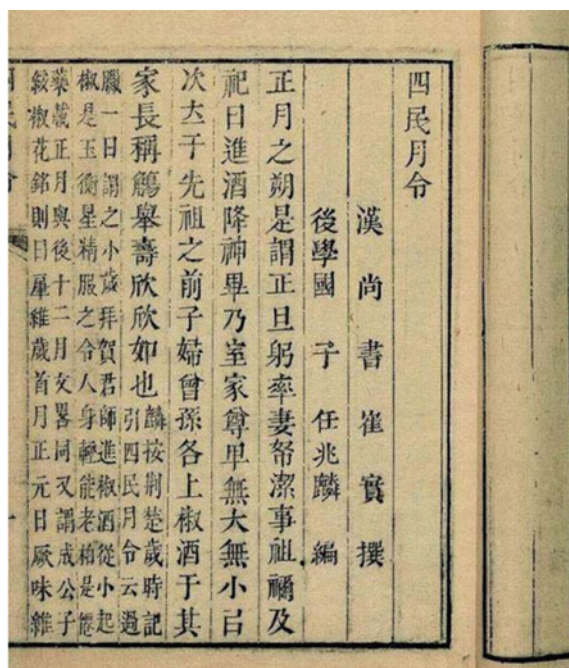 四民月令
漢尚書崔實撰
後學國子任兆麟編
正月之朔是謂正旦躬率妻帑潔事祖禰及
祀日進酒降神畢乃室家尊卑無大無小㠯
次于先祖之前子婦曾孫各上椒酒于其
家長稱觴舉壽欣欣如也
麟按荆楚歲時記
引四民月令云過
臘一日謂之小歲拜賀君師進椒酒從小起
椒是玉衡星精服之令人身輕能老柏是僊
藥正月與後十二月文畧同又謂成公子
綏椒花銘則曰肇維歲首月正元日厥味維
四民月令